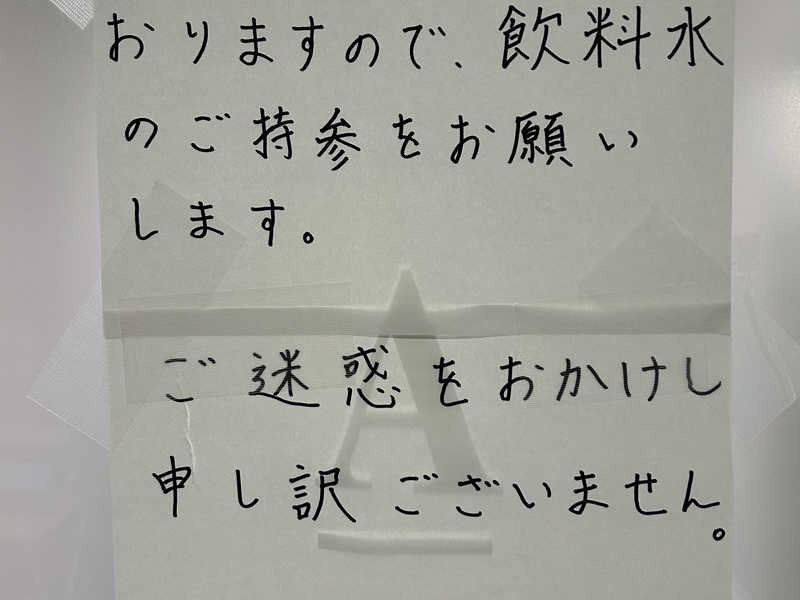 おりますので、飲料水
のご持参をお願い
します。
ご迷惑をおかけし
申し訳ございません。
A